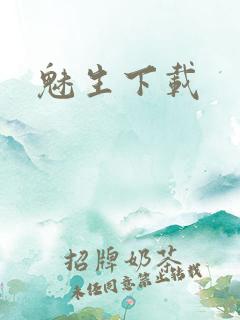 魅生下載
招牌奶茶
未经同意禁止转载